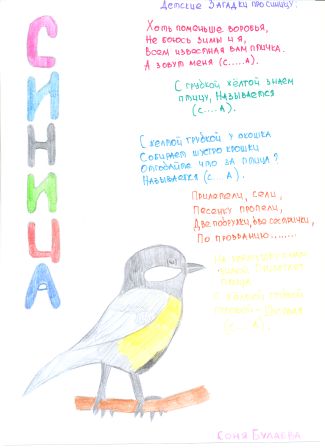 Детские Загадки про синицу:
СИНИЦА
Хоть поменьше воробья,
Не боюсь зимы и я,
Всем известная вам птичка.
А зовут меня (с.....А).
С грудкой жёлтой знаем
птицу, Называется
(с....А).
С желтой грудкой у окошка
Собирает шустро крошки
Отгадайте что за птица?
Называется (с...А).
Прилетели, сели,
Песенку пропели,
Две подружки, две сестрички,
По прозванью.......
(с...А).
Соня Булаева